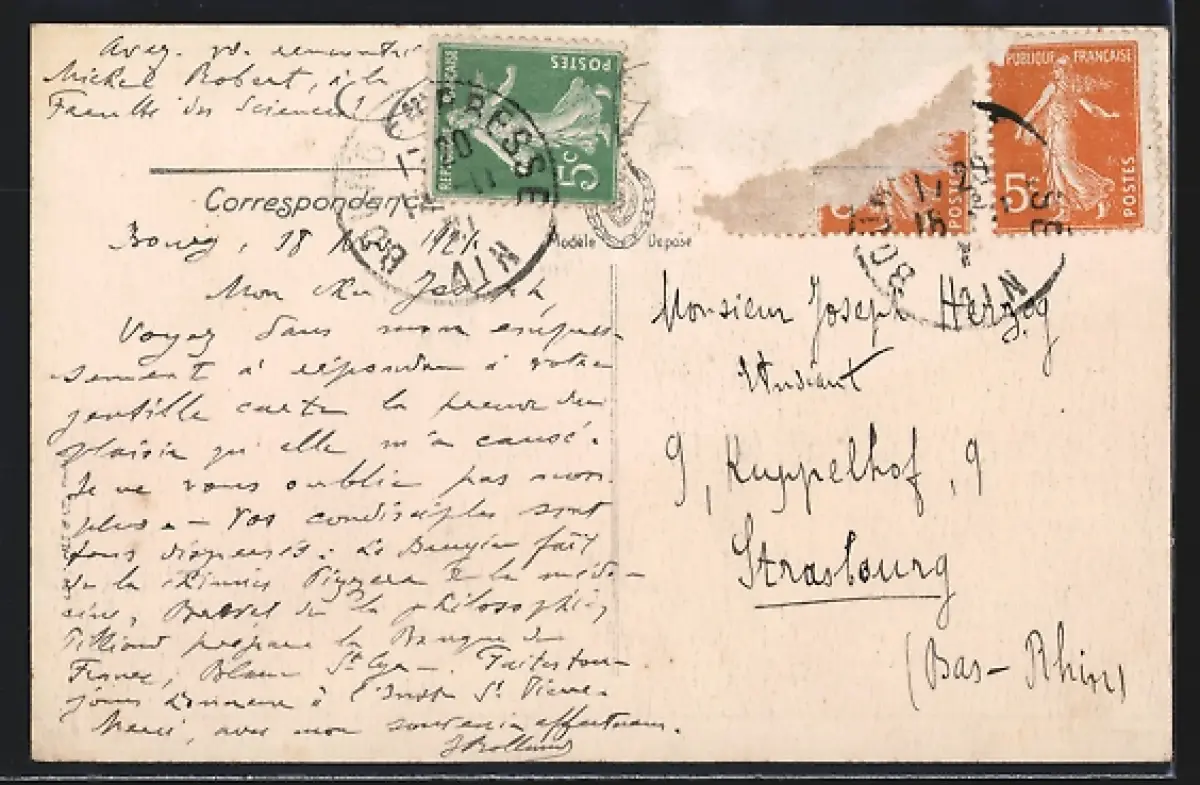 Avez-vs. rencontré
Michel Robert, à la
Faculté des Sciences?
RÉPUBLIQUE FRANÇAISE
POSTES
5c
BOURG-EN-BRESSE
AIN
Correspondance
Modèle Déposé
Bourg, 18 Nov 192
Mon cher Joseph,
Voyez dans mon empres-
sement à répondre à votre
gentille carte la preuve du
plaisir qu'elle m'a causé.
Je ne vous oublie pas non
plus. — Vos condisciples sont
tous dispersés: Le fait
de la chimie, de la méde-
cine, de la philosophie,
prépare la Banque de
France, Blanc St Cyr. Faites tou-
jours honneur à l'Inst. St Pierre.
Merci, avec mon souvenir affectueux.
RÉPUBLIQUE FRANÇAISE
5c
POSTES
POSTES
Monsieur Joseph Herzog
Etudiant
9, Kuppelhof, 9
Strasbourg
(Bas-Rhin)